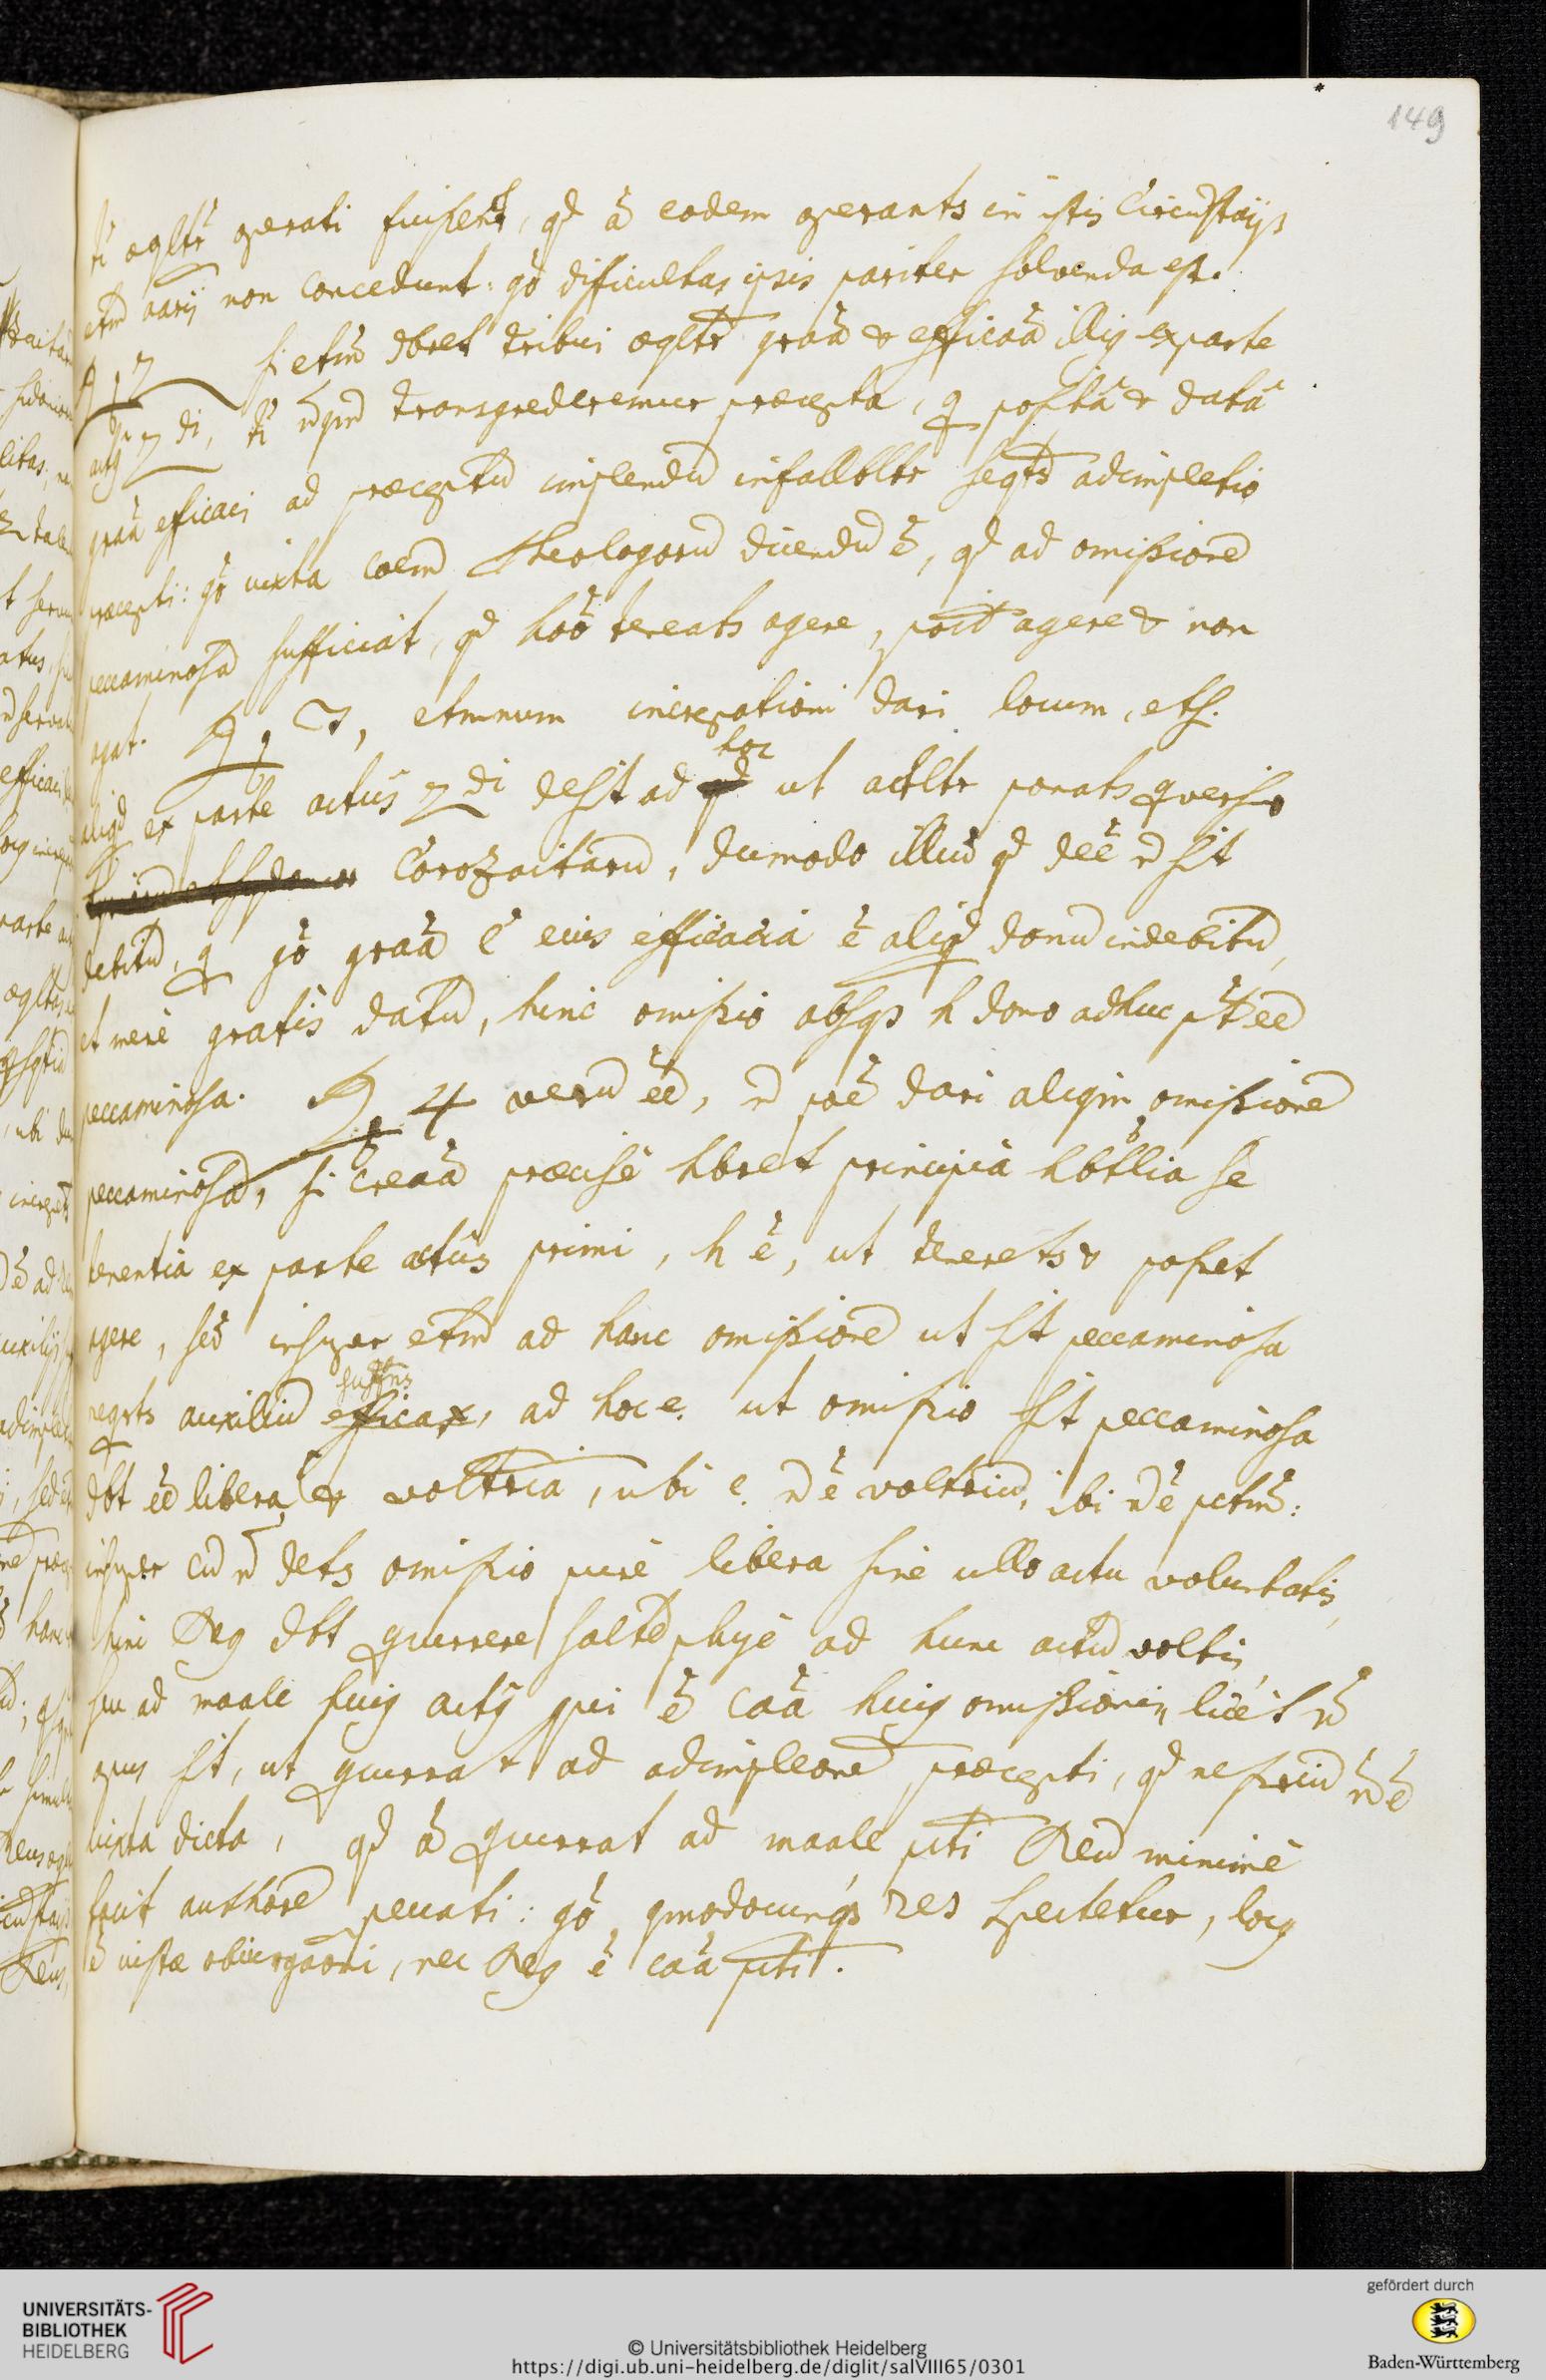 149
operati fuissent, qd a eodem operants in istis Circustatijs
etm aarij non concedunt: go difficultas ipsis pariter solvenda est.
si etm dbret tribui aqltr graa & efficaa illig exparte
di, transgrederemur præcepta, q posita & data
graa efficaci ad præceptu implendu infallbltr seqts adimpletio
præcepti: go iuxta coem Theologoru dicendu e, qd ad omissione
peccaminosa sufficiat, qd hoo teneats agere, poit agere & non
agat. etmnum increpationi dari locum, ets.
aliqd ex parte actus 2 di desit ad
hoc
ut actltr ponats qversio
Corozaitaru, dumodo illud qd dee n sit
debitu, q go graa e eius efficacia e aliqd donu indebitu,
et mere gratis datu, hinc omissio absqs h dono adhuc pt ee
peccaminosa. R. 4 veru ee, n poe dari aliqm omissione
peccaminosa, si creaa præcise hbret principia hbtlia se
tenentia ex parte actus primi, h e, ut tenerets & posset
agere, sed insuper etm ad hanc omissione ut sit peccaminosa
reqrts auxiliu efficax, ad hoc e. ut omissio sit peccaminosa
dbt ee libera & voltria, ubi e. n e voltriu, ibi n e pctm:
insuper cu n dets omissio pure libera sine ullo actu voluntatis,
hinc Deg dbt qcurrere salte physe ad hunc actu voltis,
seu ad maale huig actg qui e caa huig omissionis, licet n
opus sit, ut qcurrat ad adimpleone præcepti, qd necessriu n e
iuxta dicta, qd a qcurrat ad maale pcti Deu minime
facit authore peccati: go qmodocunqs res spectetur, locg
e iustæ obiurgaoni, nec Deg e caa pcti.
UNIVERSITÄTS-
BIBLIOTHEK
HEIDELBERG
© Universitätsbibliothek Heidelberg
https://digi.ub.uni-heidelberg.de/diglit/salVIII65/0301
gefördert durch
Baden-Württemberg